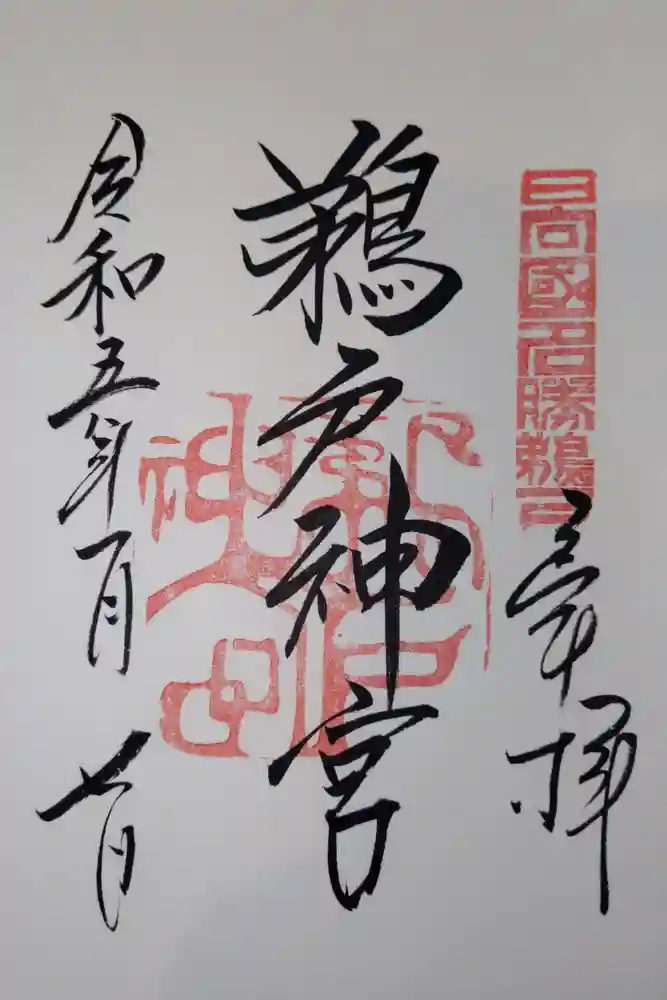 日向國名勝鵜戸
奉拝
鵜戸神宮
令和五年一月七日